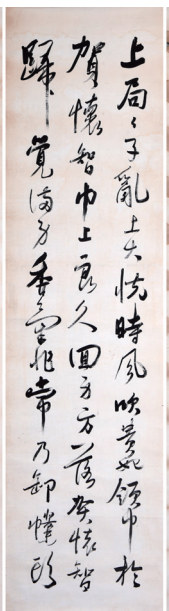 上局局子亂上大悅時風吹貴妃領巾於
賀懷智巾上良久回身方落賀懷智
歸覺滿身香氣非常乃卸幞頭